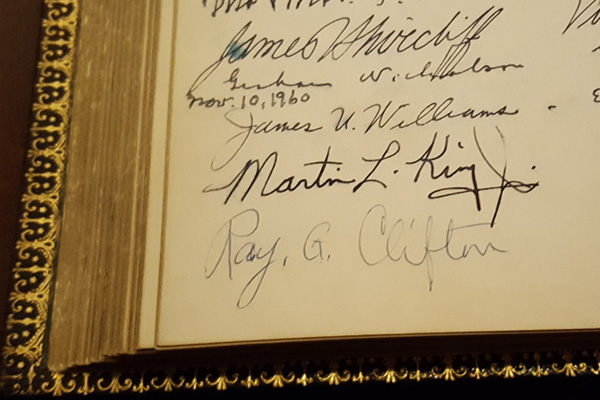 James Shircliff
Graham Nicholson
Nov. 10, 1960
James U. Williams
Martin L. King Jr.
Ray. G. Clifton